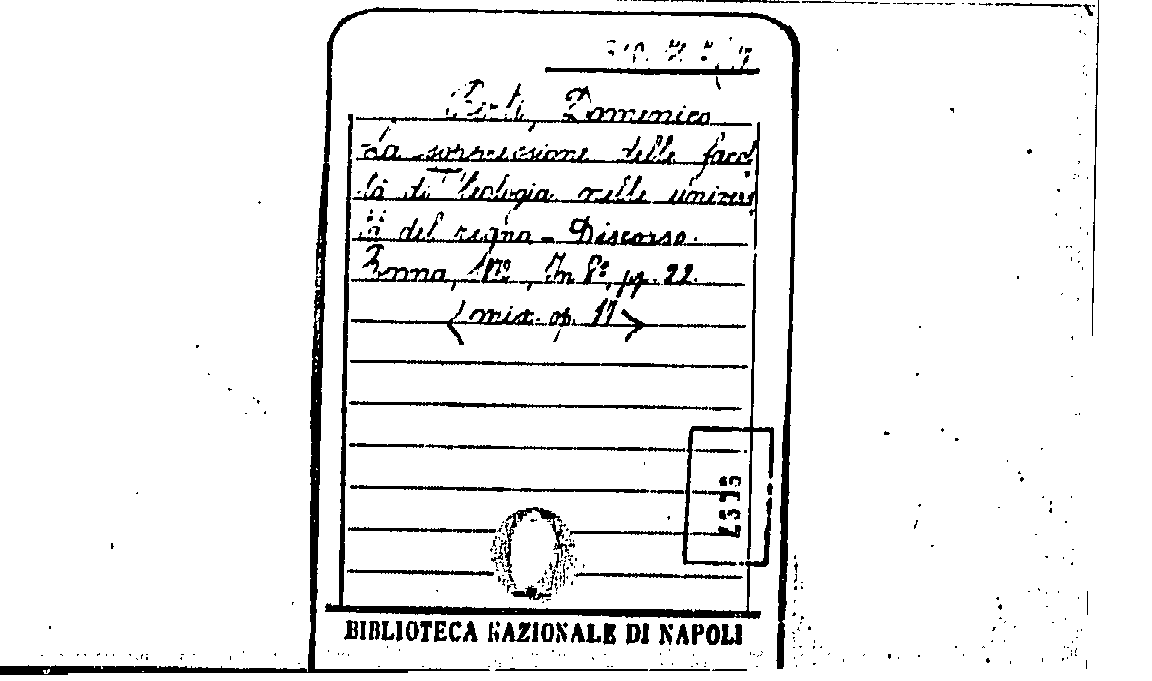 Berti, Domenico
La soppressione delle facol
tà di Teologia nelle universi
tà del regno - Discorso.
Roma, In 8°, pp. 22.
(mix. op. 17)
BIBLIOTECA NAZIONALE DI NAPOLI